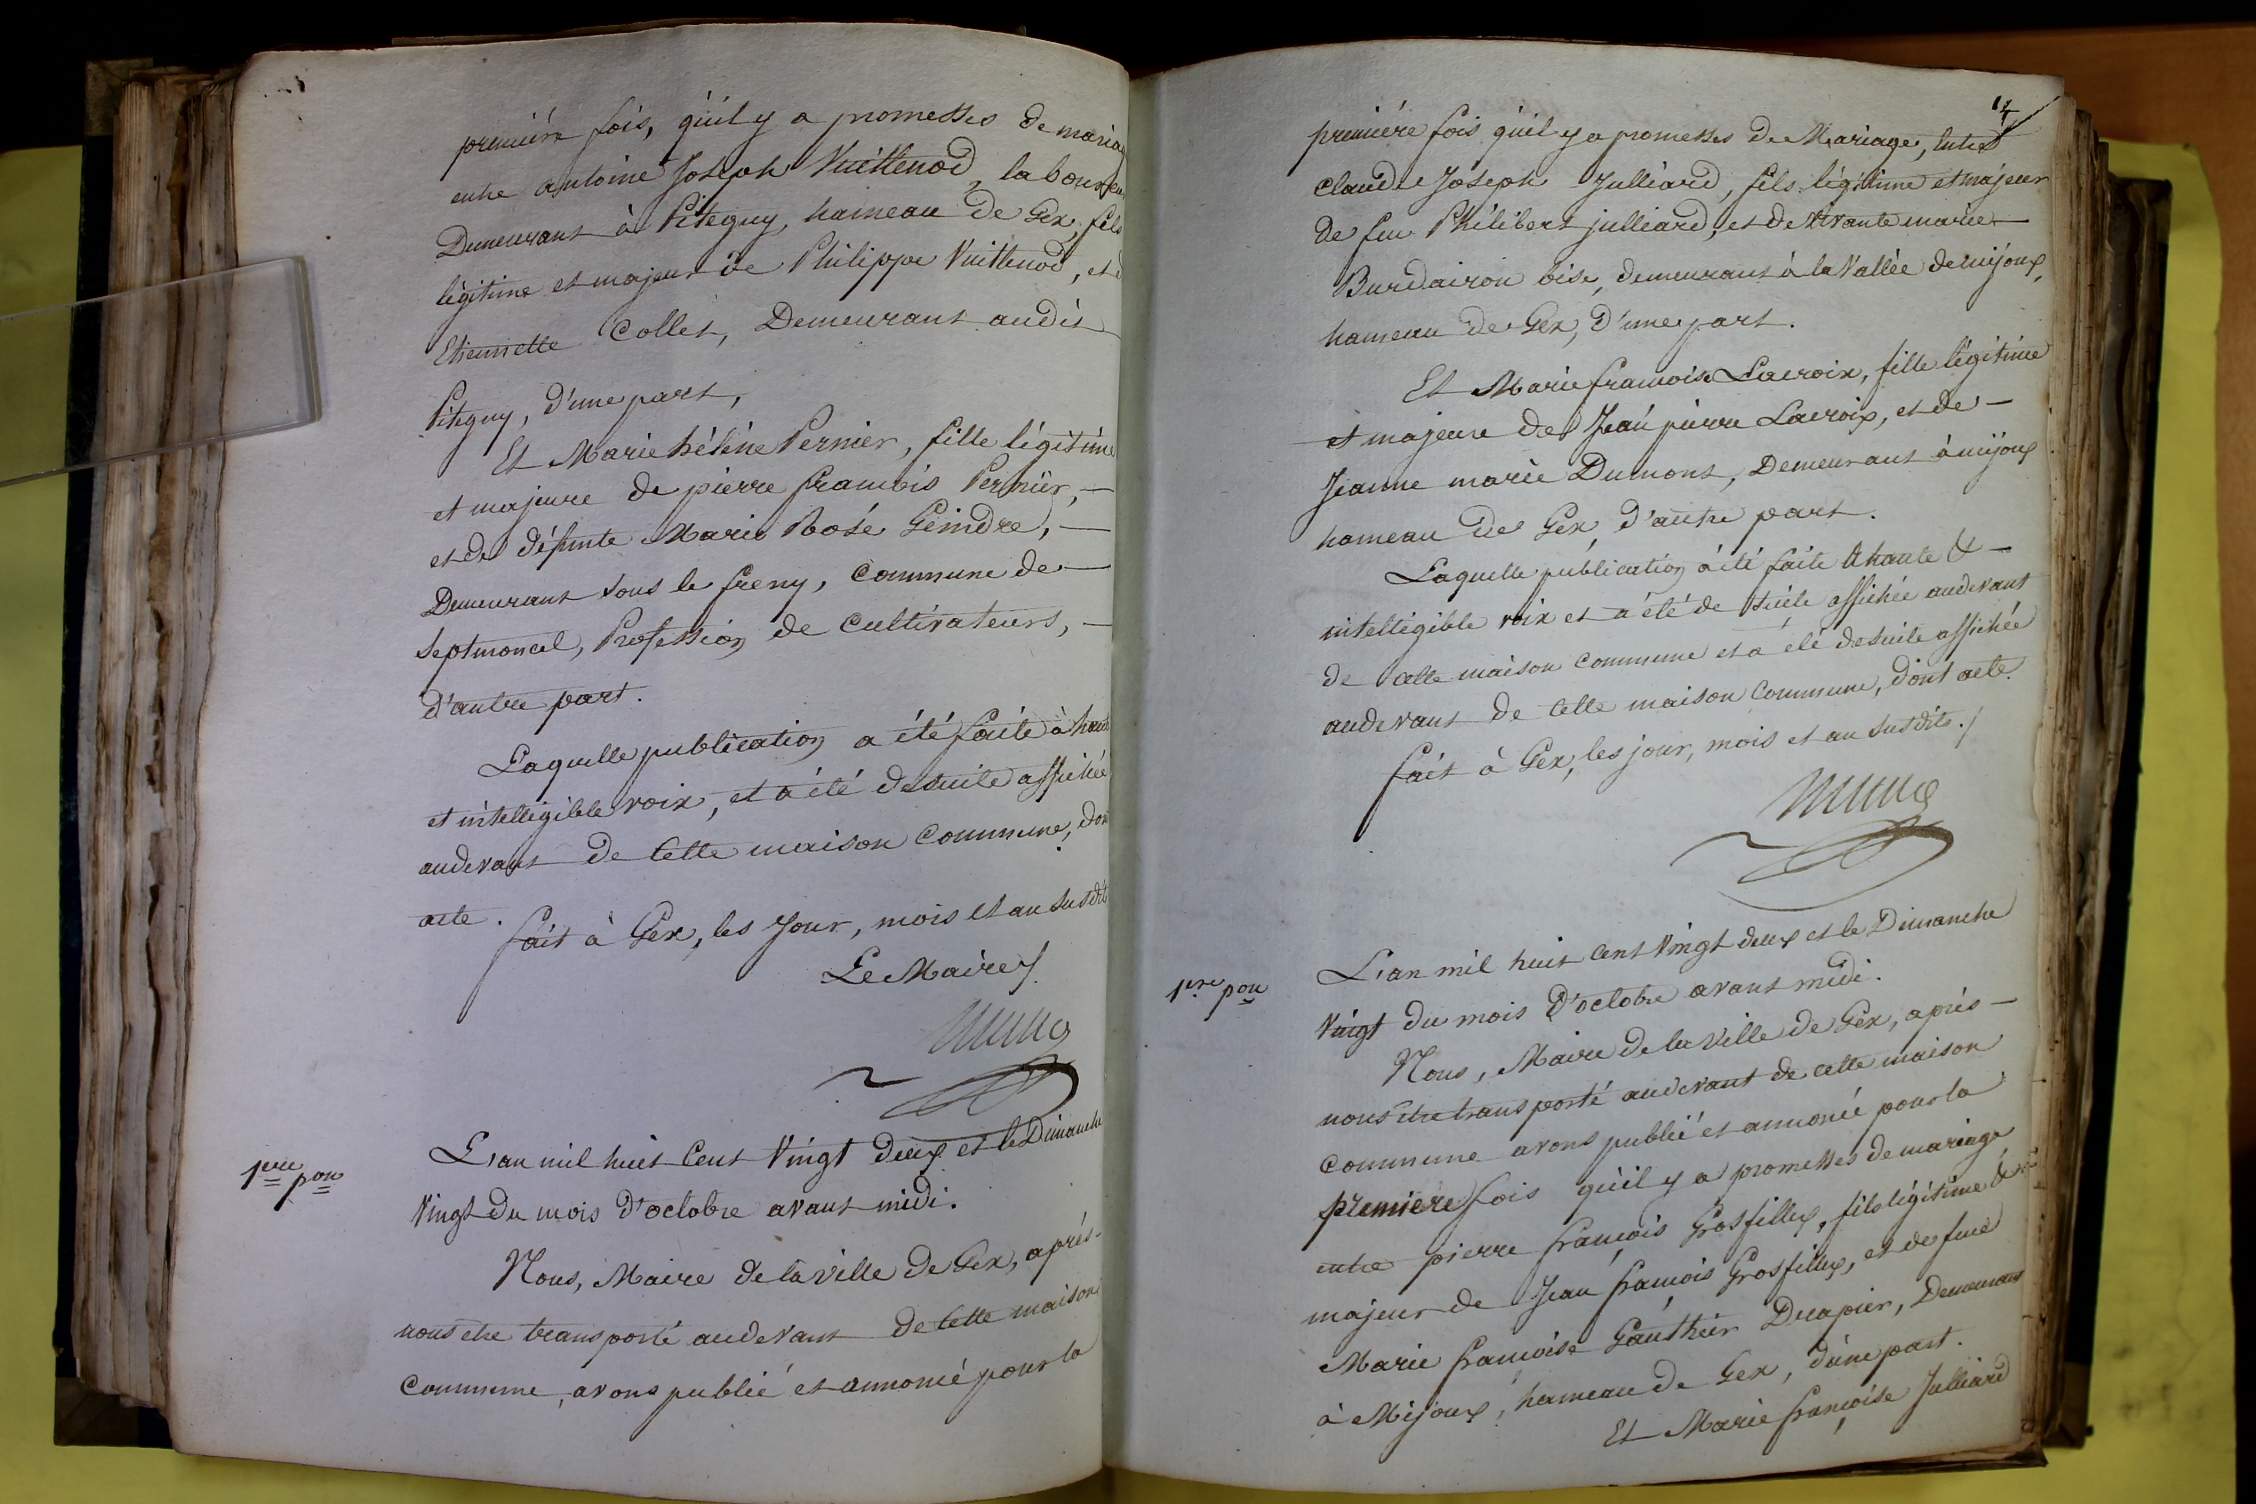 première fois, qu'il y a promesses de mariag
entre antoine Joseph Vuillenod, laboureu
Demeurant à Piteguy, hameau de Gex, fils
légitime et majeur de Philippe Vuillenod, et d
Etiennette Collet, Demeurant audit
Piteguy, d'une part,
Et Marie hélène Pernier, fille légitime
et majeure de pierre françois Pernier, —
et de défunte Marie Rose Geindre, —
Demeurant sous le freny, commune de —
Septmoncel, Profession de cultivateurs, —
d'autre part.
Laquelle publication a été faite à haute
et intelligible voix, et a été desuite affichée
audevant de Cette maison commune, dont
acte.
fait à Gex, les Jour, mois et an susdits
Le Maire /.
1re pon
L'an mil huit Cent Vingt deux et le Dimanche
Vingt du mois d'octobre avant midi.
Nous, Maire de la ville de Gex, après-
nous etre transporté audevant de Cette maison
Commune, avons publié et annoncé pour la
première fois qu'il y a promesses de Mariage, entre
claude Joseph Julliard, fils légitime et majeur
de feu Philibert julliard, et de Vivante marie —
Burdairon oise, demeurant à la Vallée de mijoux,
hameau de Gex, d'une part.
Et Marie françoise Lacroix, fille légitime
et majeure de Jean pierre Lacroix, et de —
Jeanne marie Dumont, Demeurant à mijoux
hameau de Gex, d'autre part.
Laquelle publication à été faite à haute & —
intelligible voix et a été de suite affichée audevant
de cette maison commune et a été desuite affichée
audevant de Cette maison Commune, dont acte.
fait à Gex, les jour, mois et an susdits./
1re pon
L'an mil huit Cent Vingt deux et le Dimanche
Vingt du mois d'octobre avant midi.
Nous, Maire de la Ville de Gex, après —
nous etre transporté audevant de cette maison
Commune avons publié et annoncé pour la
première fois qu'il y a promesses de mariage
entre pierre françois Grosfillex, fils légitime &
majeur de Jean françois Grosfillex, et de feue
Marie françoise Gauthier Ducapier, Demeurant
à Mijoux, hameau de Gex, d'une part.
Et Marie françoise Julliard